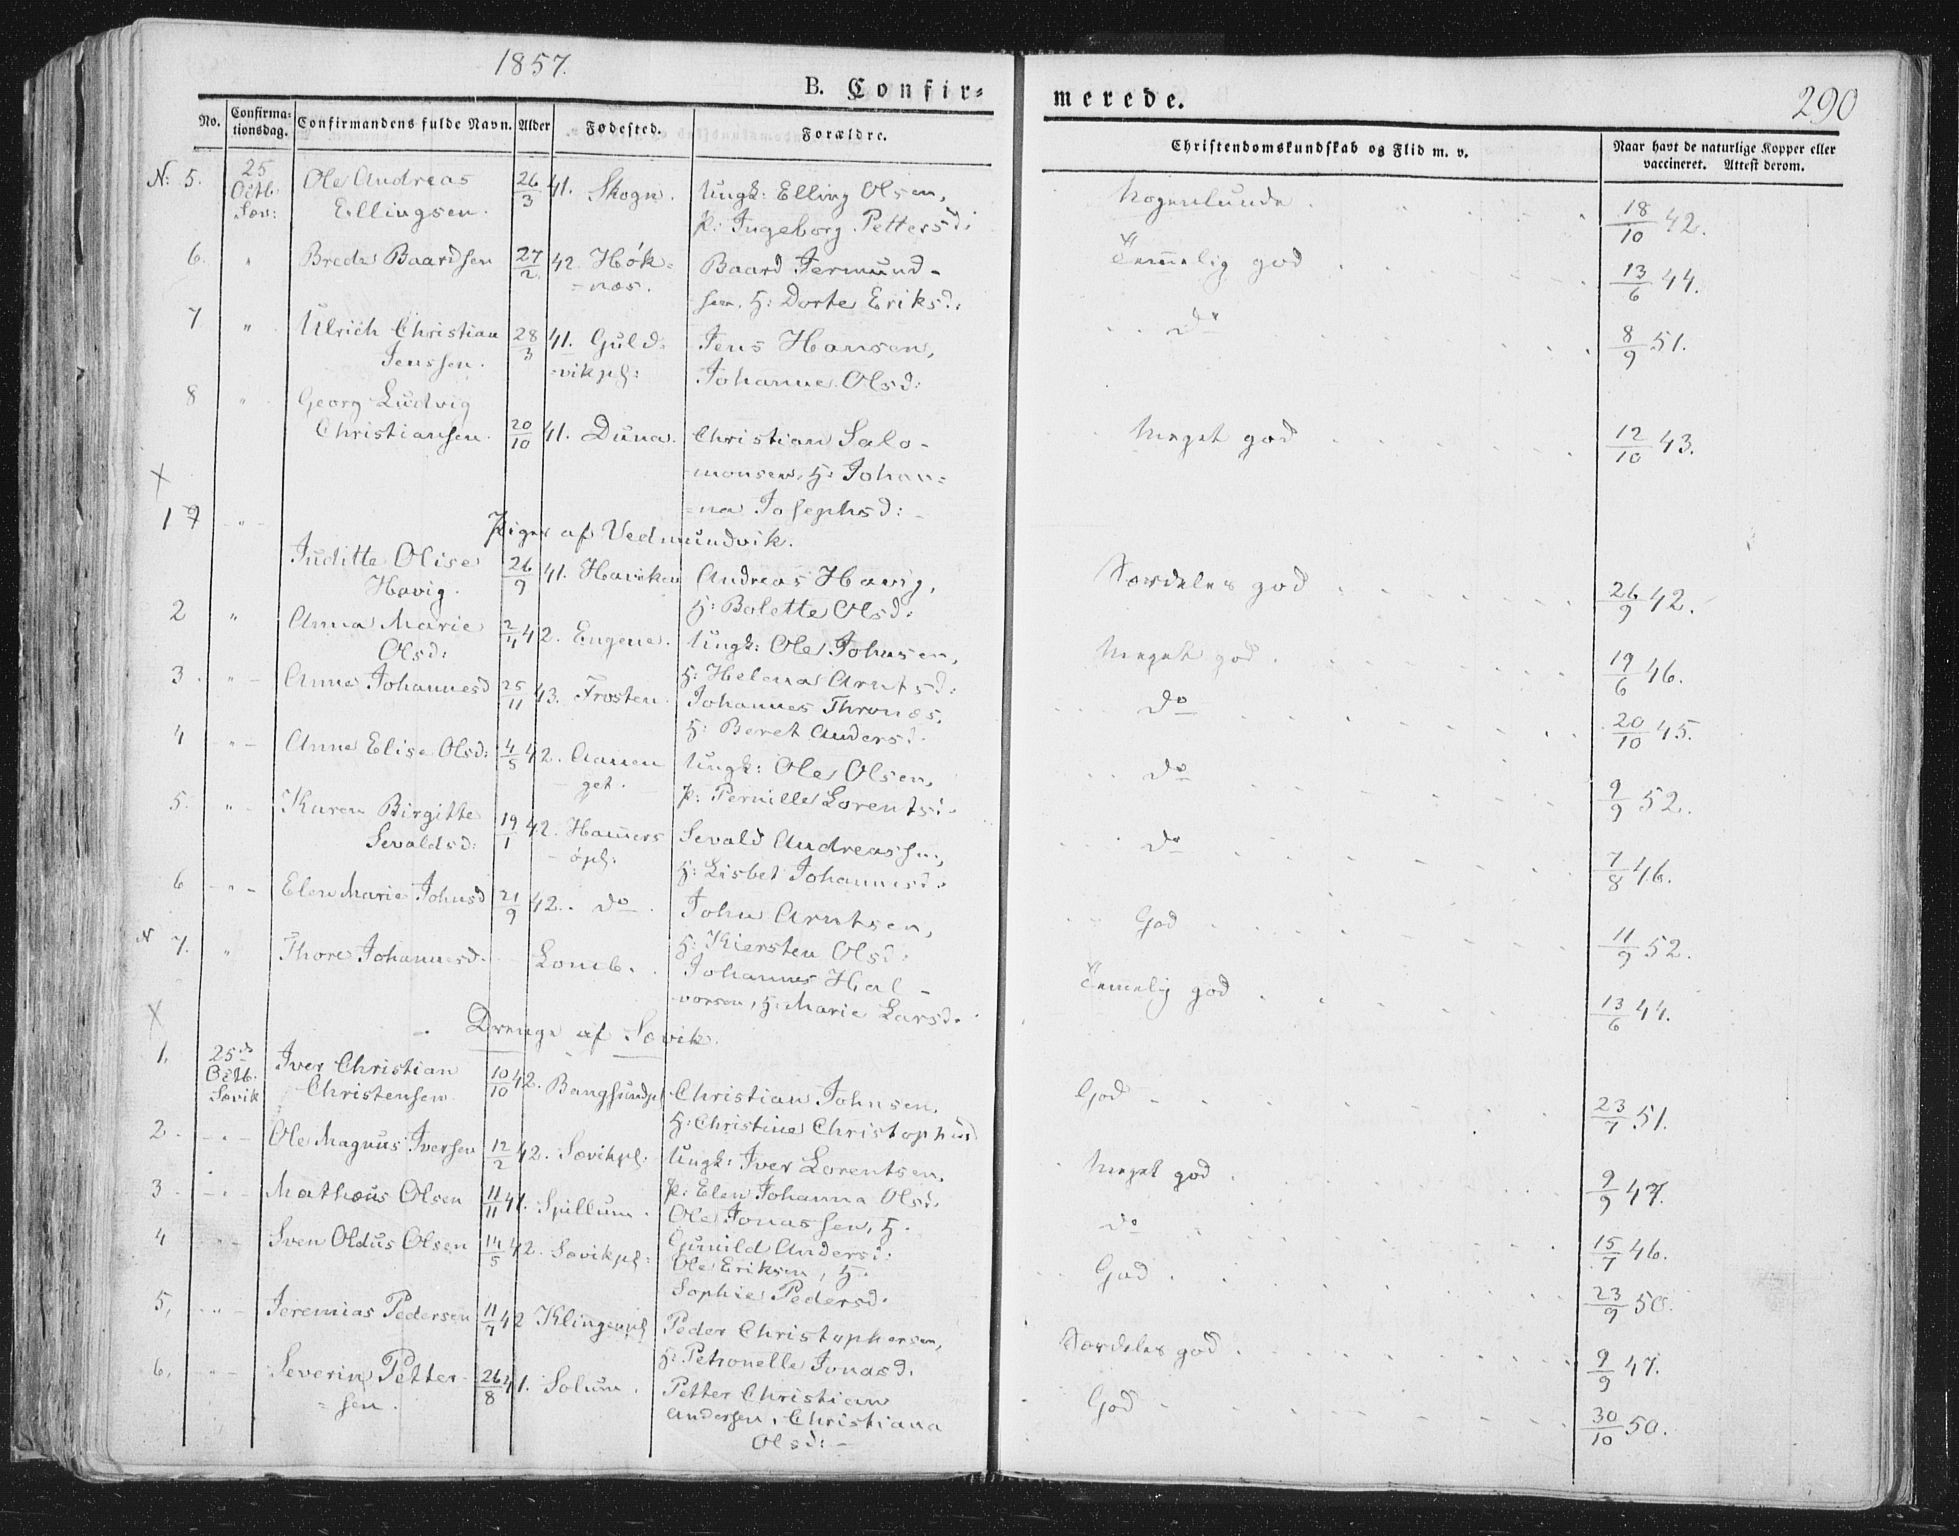 1857.
B. Confir-
merede.
290
No. Confirma-tionsdag. Confirmandens fulde Navn. Alder Fødested. Forældre. Christendomskundskab og Flid m. v. Naar havt de naturlige Kopper eller vaccineret. Attest derom.
N: 5. 25 Octb. Sæv: Ole Andreas Ellingsen. 26/3 41. Skogn. Ungk: Elling Olsen, P: Ingeborg Pettersd: Nogenlunde 18/10 42.
6. " Brede Baardsen 27/2 42. Høk-næs. Baard Jermund-sen, H: Dorte Eriksd: Temmelig god 13/6 44.
7 " Ulrich Christian Jenssen. 28/3 41. Guld-vikpl: Jens Hansen, Johanne Olsd: do 8/9 51.
8 " Georg Ludvig Christiansen. 20/10 41. Duna. Christian Salo-monsen, H: Johan-na Josephsd: Meget god 12/10 43.
X
Piger af Vedmundvik.
1 " Juditte Olise Havig. 26/9 41. Haviken Andreas Havig, H: Bolette Olsd: Særdeles god 26/9 42.
2 " Anna Marie Olsd: 2/4 42. Engene. Ungk: Ole Johnsen, H: Helena Arntsd: Meget god 19/6 46.
3. " Anne Johannesd 25/11 43. Frosten. Johannes Thronæs, H: Beret Andersd. do 20/10 45.
4 " Anne Elise Olsd: 4/5 42. Aanen get. Ungk: Ole Olsen, P: Pernille Lorentsd. do 9/9 52.
5. " Karen Birgitte Sevaldsd: 19/1 42. Hamers øpl: Sevald Andreassen, H: Lisbet Johannesd. do 7/8 46.
6 " Elen Marie Johnsd 21/9 42. do John Arntsen, H: Kiersten Olsd: God 11/9 52.
N 7. " Thore Johannesd. Lomb. Johannes Hal-vorsen, H: Marie Larsd. Temmelig god 13/6 44.
X
Drenge af Sævik.
1. 25de Octb. Sævik Iver Christian Christensen 10/10 42. Bangsundpl Christian Johnsen, H: Christine Christophsd God 23/7 51.
2. " Ole Magnus Iversen 12/2 42. Sævikpl. Ungk: Iver Lorentsen, P: Elen Johanna Olsd. Meget god 9/9 47.
3. " Mathæus Olsen 11/11 41. Spillum. Ole Jonassen, H. Gunild Andersd. do 15/7 46.
4 " Sven Oldus Olsen 14/5 42. Sævikpl: Ole Eriksen, H. Sophie Pedersd. God 23/9 50.
5. " Jeremias Pedersen 11/7 42 Klingenpl Peder Christophersen, H: Petronelle Jonasd. Særdeles god 9/9 47.
6. " Severin Petter-sen. 26/8 41. Solum. Petter Christian Andersen, Christiana Olsd: God 30/10 50.